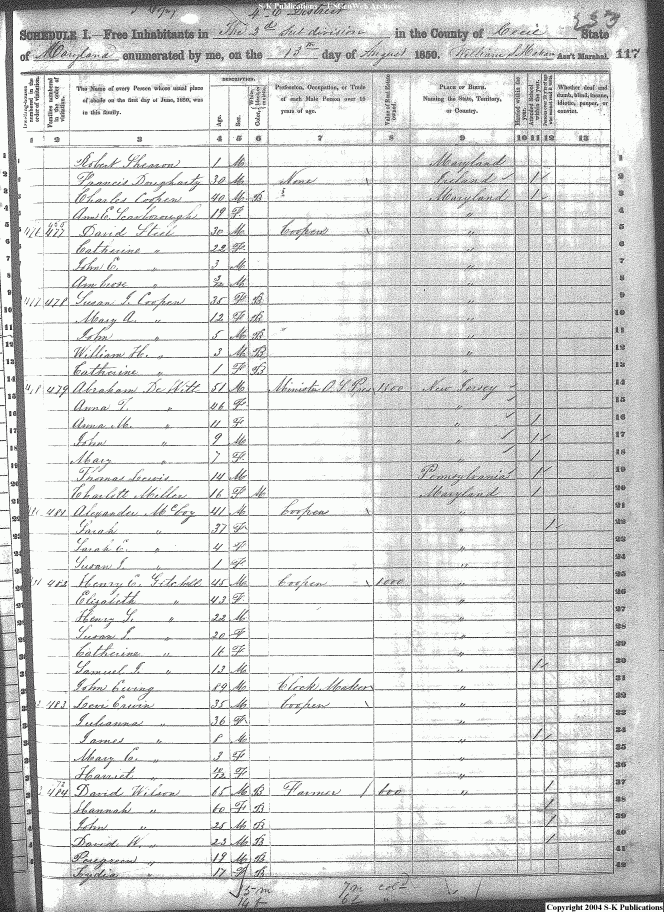 S-K Publications - USGenWeb Archives
4th District 233
SCHEDULE I.—Free Inhabitants in The 2d Subdivision in the County of Cecil State
of Maryland enumerated by me, on the 13th day of August 1850. William Ass't Marshal. 117
Dwelling-houses numbered in the order of visitation. Families numbered in the order of visitation. The Name of every Person whose usual place of abode on the first day of June, 1850, was in this family. DESCRIPTION. Age. Sex. Color, Profession, Occupation, or Trade of each Male Person over 15 years of age. Value of Real Estate owned. PLACE OF BIRTH. Naming the State, Territory, or Country. Married within the year. Attended School within the year. Whether deaf and dumb, blind, insane, idiotic, pauper, or convict.
1 2 3 4 5 6 7 8 9 10 11 12 13
1 Robert 1 M Maryland 1
2 Francis Dougharty 30 M None Ireland 1 2
3 Charles Cooper 40 M B " Maryland 1 3
4 Ann E. Scarborough 19 F " 4
5 477 David Steel 30 M Cooper " 5
6 Catharine " 22 F " 6
7 John E. " 3 M " 7
8 Ambrose " M " 8
9 478 Susan J. Cooper 35 F B " 9
10 Mary A. " 12 F B " 10
11 John " 5 M B " " 11
12 William H. " 3 M B " 12
13 Catherine " 1 F B " 13
14 479 Abraham De Witt 51 M Minister O. S. Pres 1500 New Jersey 14
15 Anna T. " 46 F " 15
16 Anna M. " 11 F " 1 16
17 John " 9 M " 1 17
18 Mary " 7 F " 1 18
19 Thomas Lewis 14 M Pennsylvania 1 19
20 Charlott Miller 16 F M Maryland 1 20
21 481 Alexander McCoy 41 M Cooper " 21
22 Sarah " 37 F " 1 22
23 Sarah E. " 4 F " 23
24 Susan J. " 1 F " 24
25 482 Henry E. 45 M Cooper 1000 " 25
26 Elizabeth " 43 F " 26
27 Henry S. " 22 M " 27
28 Susan J. " 20 F " 28
29 Catherine " 16 F " 29
30 Samuel J. " 13 M " 1 30
31 John Ewing 89 M Clock Maker " 31
32 483 Levi Erwin 35 M Cooper " 32
33 Julianna " 36 F " 33
34 James " 8 M " 1 34
35 Mary E. " 3 F " 35
36 Harriet " F " 36
37 484 David Wilson 65 M B Farmer 600 " 1 37
38 Hannah " 60 F B 1 38
39 John " 25 M B 1 39
40 David H. " 23 M B 1 40
41 Peregreen " 19 M B 41
42 Lydia " 17 F B 42
15 m 7m col'd
14 f 6f "
Copyright 2004 S-K Publications